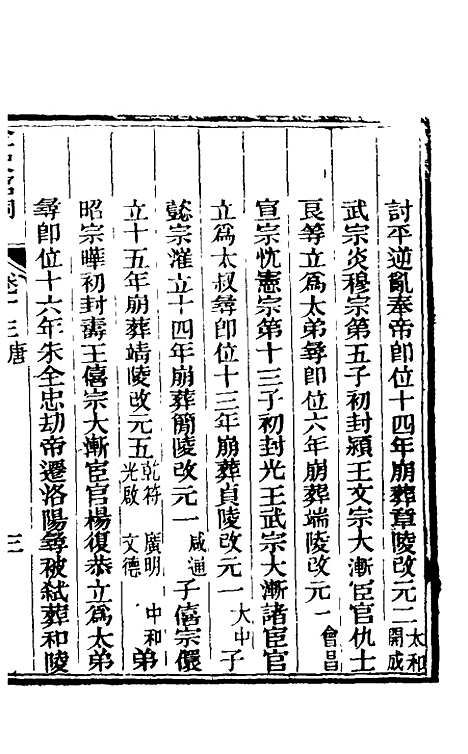 討平逆亂奉帝卽位十四年崩葬章陵改元二太和開成
武宗炎穆宗第五子初封潁王文宗大漸宦官仇士
良等立爲太弟尋卽位六年崩葬端陵改元一會昌
宣宗忱憲宗第十三子初封光王武宗大漸諸宦官
立爲太叔尋卽位十三年崩葬貞陵改元一大中子
懿宗漼立十四年崩葬簡陵改元一咸通子僖宗儇
立十五年崩葬靖陵改元五乾符廣明中和光啟文德弟
昭宗曄初封壽王僖宗大漸宦官楊復恭立爲太弟
尋卽位十六年朱全忠劫帝遷洛陽尋被弒葬和陵
唐
三